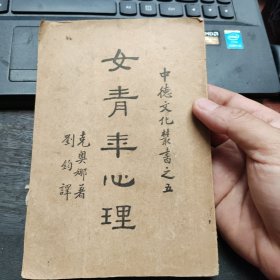 中德文化叢書之五
女青年心理
克奧娜著
劉鈞譯
AMD
intel